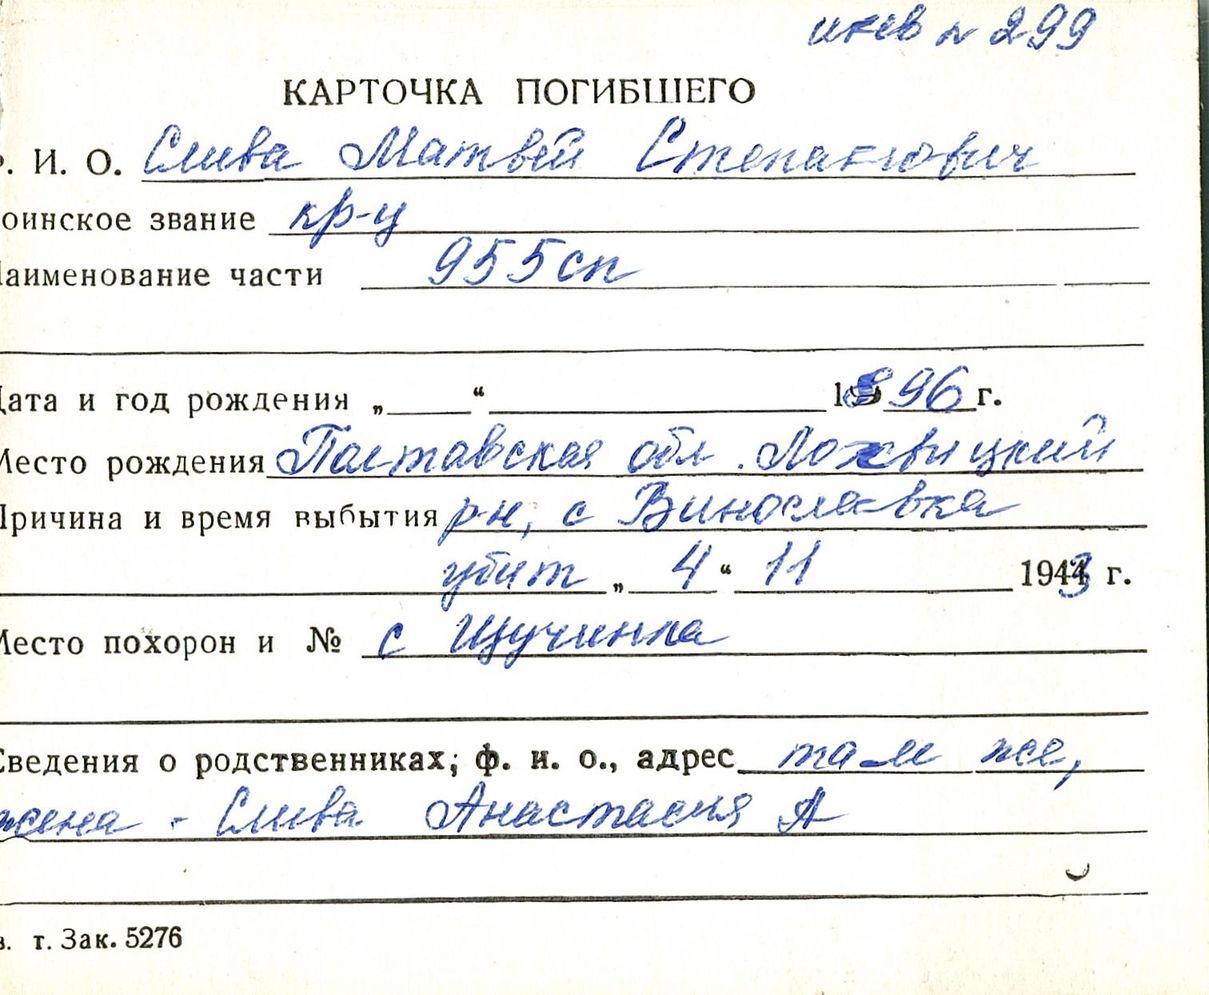 инв № 299
КАРТОЧКА ПОГИБШЕГО
. И. О. Слива Матвей Степанович
оинское звание кр-ц
аименование части 955сп
ата и год рождения „ “ 1896 г.
Место рождения Полтавская обл. Лохвицкий
Причина и время выбытия р-н, с Винославка
убит „ 4 “ 11 1943 г.
Место похорон и № с Щучинка
Сведения о родственниках; ф. и. о., адрес там же,
жена - Слива Анастасия А
в. т. Зак. 5276